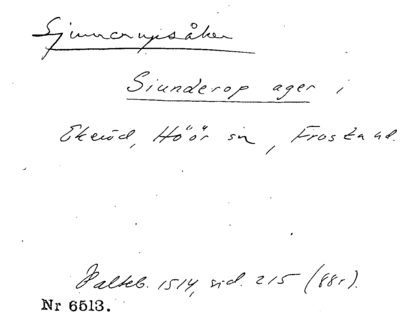 Sjunnerupsåker
Siunderop ager i
Ekeröd, Höör sn, Frosta hd.
Palteb. 1514, sid. 215 (88r).
Nr 6513.